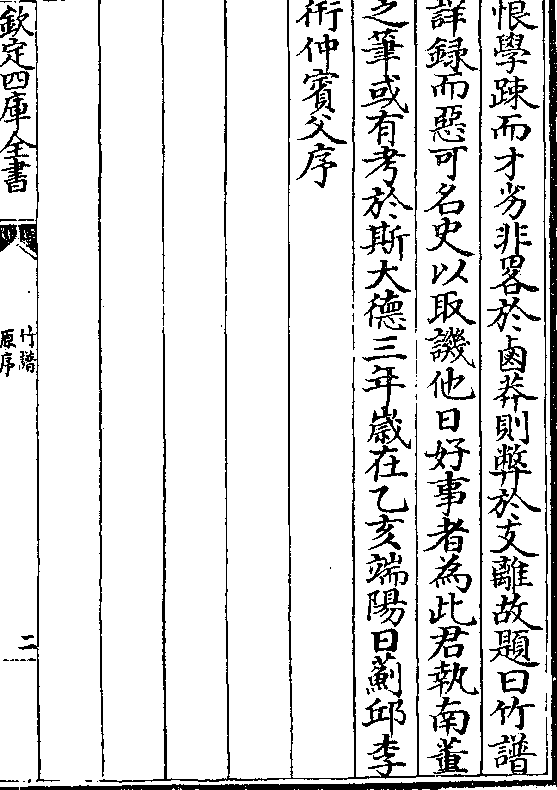 恨學踈而才劣非畧於鹵莽則弊於支離故題曰竹譜
詳録而惡可名史以取譏他日好事者為此君執南董
之筆或有考於斯大德三年嵗在乙亥端陽日薊邱李
衎仲賓父序
欽定四庫全書
竹譜
原序
二